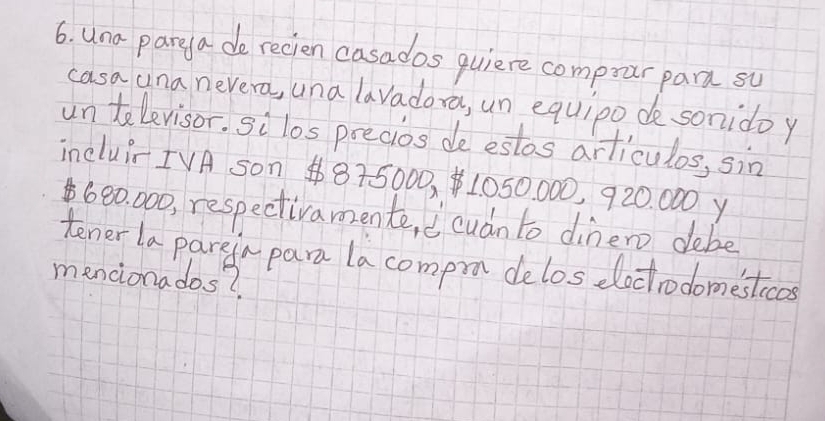 6. Una pareja de recien casados quiere comprar para su
casa una nevera, una lavadora, un equipo de sonido y
un televisor. Si los precios de estos artículos, sin
incluir IVA son $875000, $1.050.000, 920.000 y
$680.000, respectivamente, ¿cuánto dinero debe
tener la pareja para la compra de los electrodomésticos
mencionados?